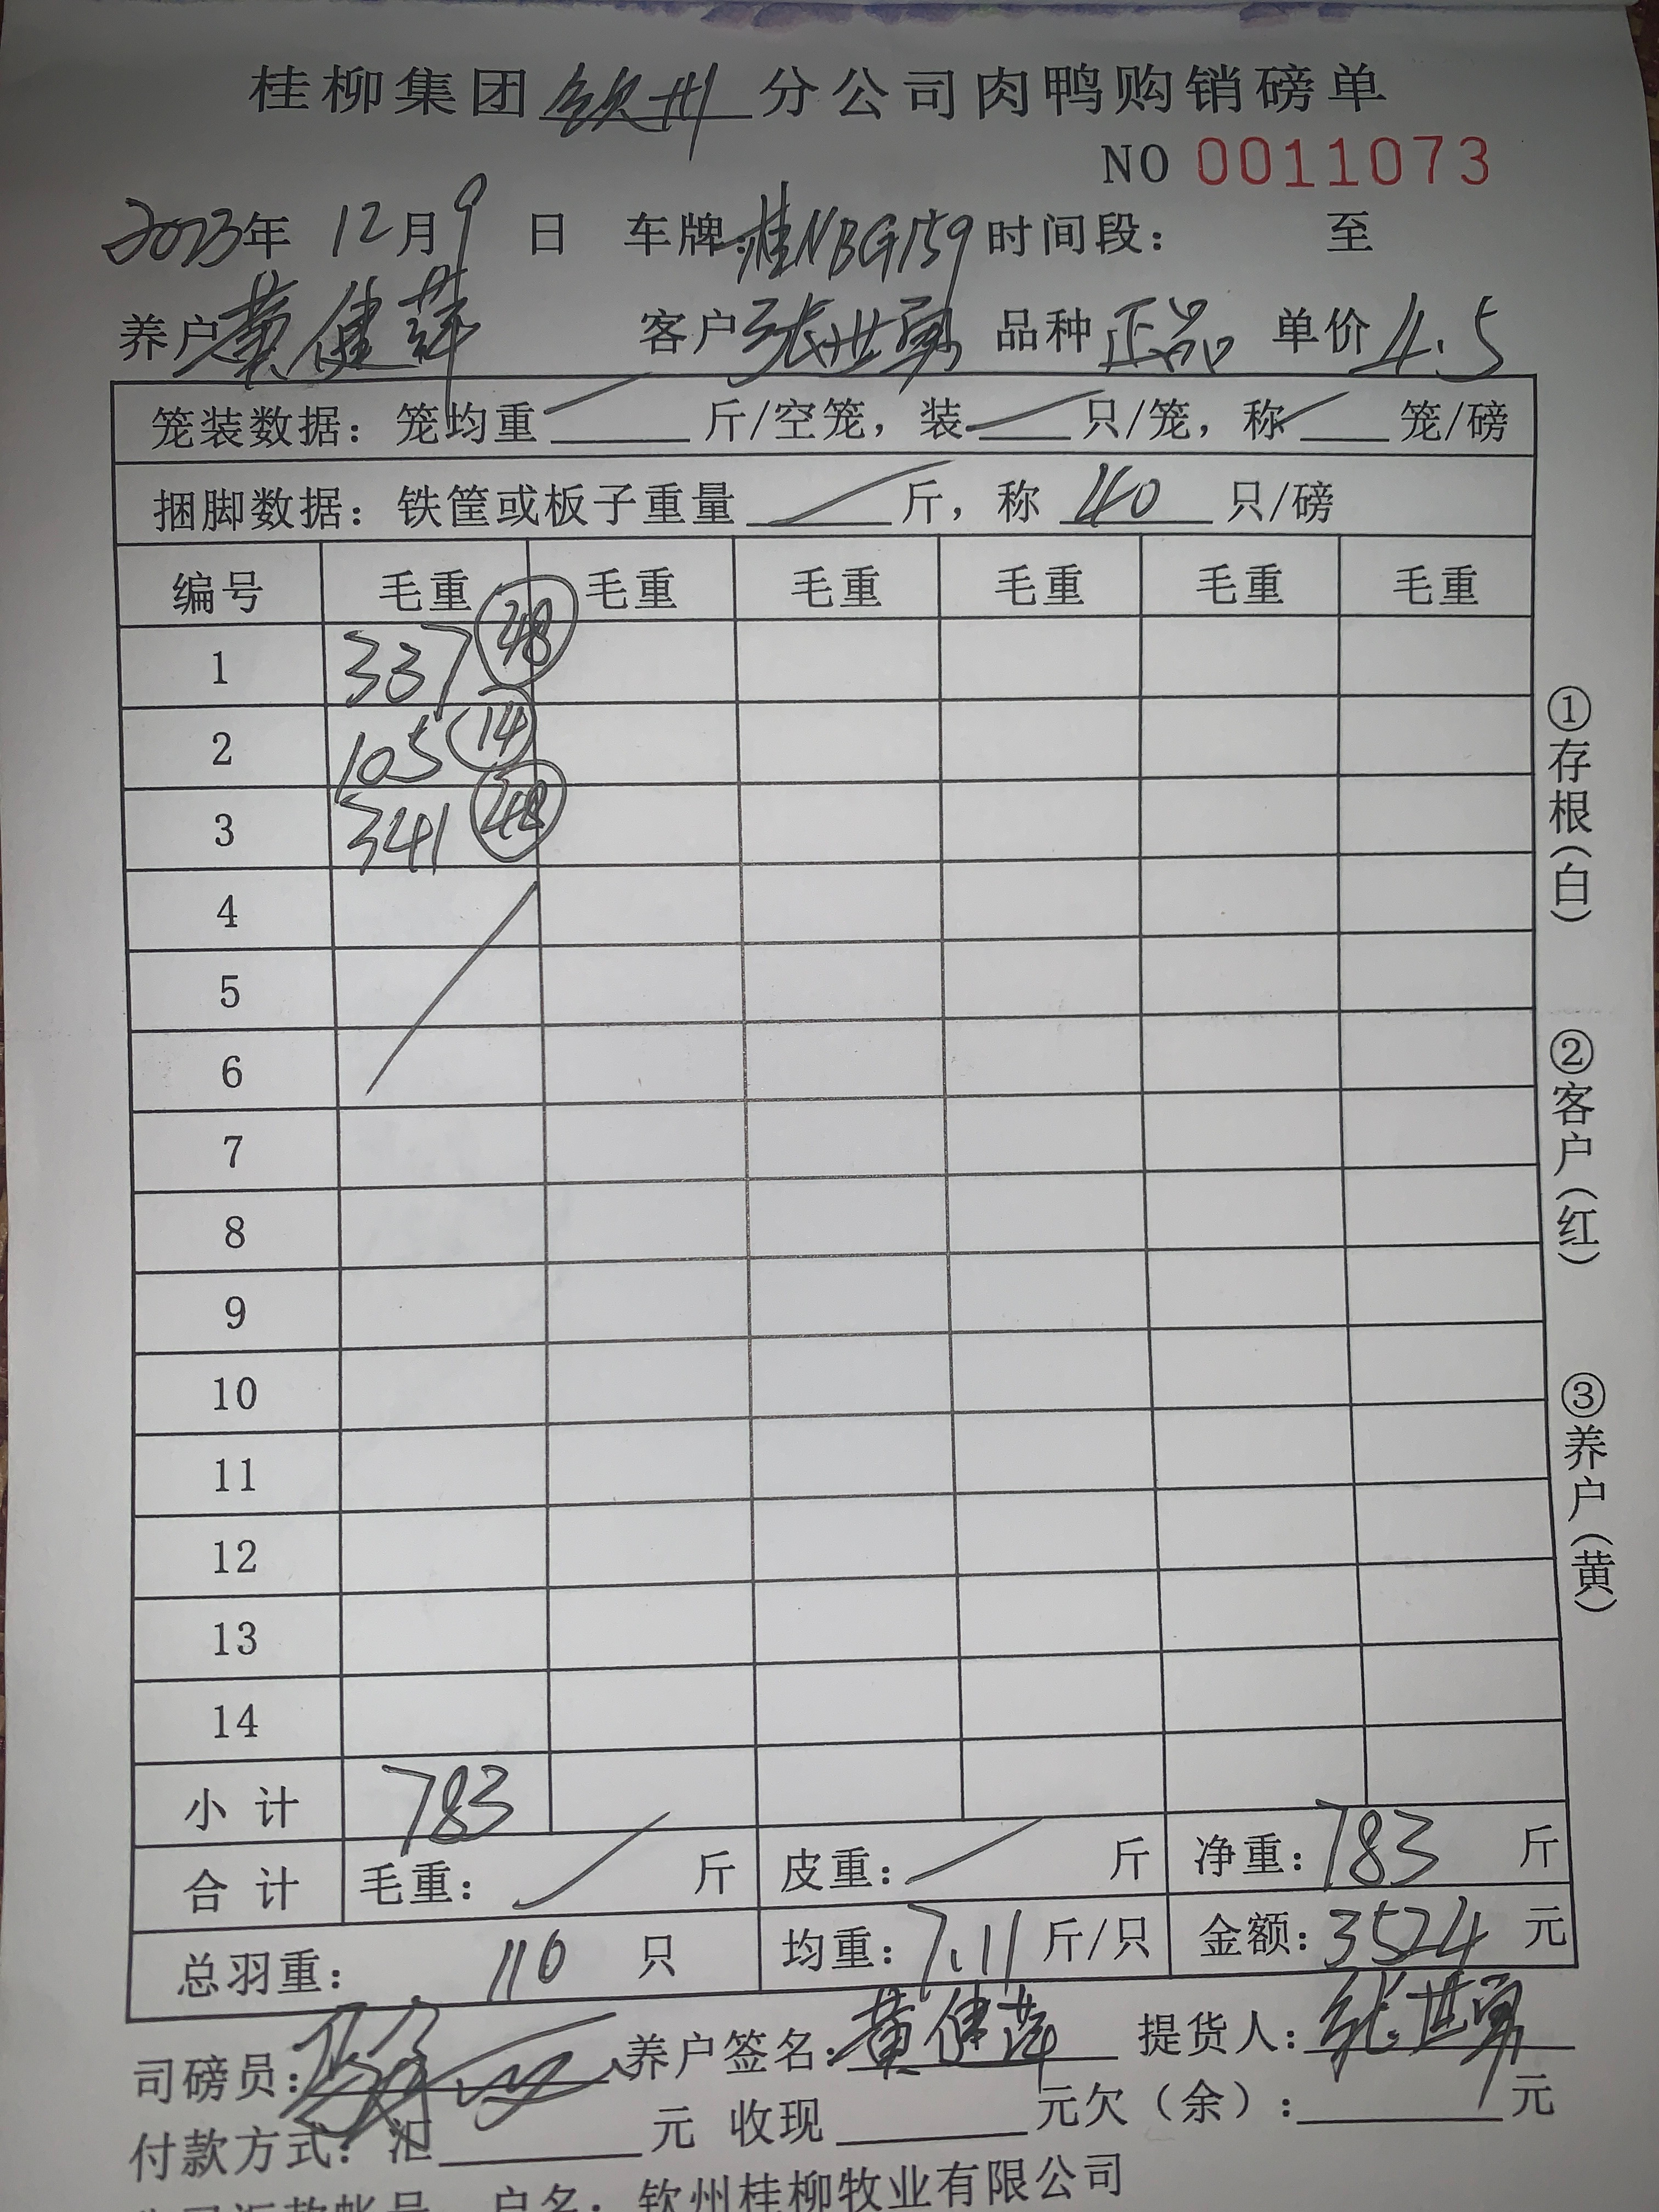 桂柳集团钦州分公司肉鸭购销磅单
NO 0011073
2023年 12月9日 车牌:桂NBG159 时间段: 至
养户黄健萍 客户张世勇 品种正品 单价4.5
笼装数据: 笼均重 斤/空笼, 装 只/笼, 称 笼/磅
捆脚数据: 铁筐或板子重量 斤, 称 40 只/磅
编号 毛重 毛重 毛重 毛重 毛重 毛重
1 337 48
2 105 14
3 341 48
4
5
6
7
8
9
10
11
12
13
14
小计 783
合计 毛重: 斤 皮重: 斤 净重: 783 斤
总羽重: 110 只 均重: 7.11 斤/只 金额: 3524 元
司磅员: 养户签名: 黄健萍 提货人: 张世勇
付款方式: 汇 元 收现 元欠(余): 元
户名: 钦州桂柳牧业有限公司
①存根(白)
②客户(红)
③养户(黄)